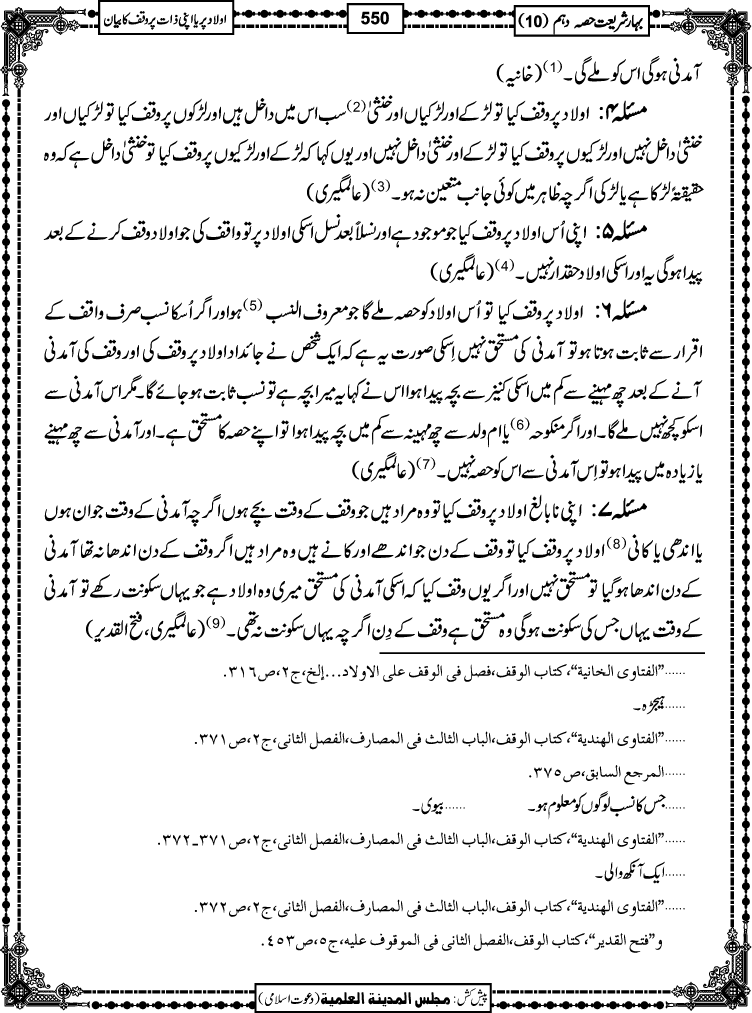 بہار شریعت حصہ دہم (10)
550
اولاد پر یا اپنی ذات پر وقف کا بیان
آمدنی ہوگی اس کو ملے گی۔(1) (خانیہ)
مسئلہ ۴: اولاد پر وقف کیا تو لڑکے اور لڑکیاں اور خنثیٰ(2) سب اس میں داخل ہیں اور لڑکوں پر وقف کیا تو لڑکیاں اور
خنثیٰ داخل نہیں اور لڑکیوں پر وقف کیا تو لڑکے اور خنثیٰ داخل نہیں اور یوں کہا کہ لڑکے اور لڑکیوں پر وقف کیا تو خنثیٰ داخل ہے کہ وہ
حقیقۃً لڑکا ہے یا لڑکی اگرچہ ظاہر میں کوئی جانب متعین نہ ہو۔(3) (عالمگیری)
مسئلہ ۵: اپنی اُس اولاد پر وقف کیا جو موجود ہے اور نسلاً بعد نسل اسکی اولاد پر تو واقف کی جو اولاد وقف کرنے کے بعد
پیدا ہوگی یہ اور اسکی اولاد حقدار نہیں۔(4) (عالمگیری)
مسئلہ ۶: اولاد پر وقف کیا تو اُس اولاد کو حصہ ملے گا جو معروف النسب(5) ہو اور اگر اُسکا نسب صرف واقف کے
اقرار سے ثابت ہوتا ہو تو آمدنی کی مستحق نہیں اِسکی صورت یہ ہے کہ ایک شخص نے جائداد اولاد پر وقف کی اور وقف کی آمدنی
آنے کے بعد چھ مہینے سے کم میں اسکی کنیز سے بچہ پیدا ہوا اس نے کہا یہ میرا بچہ ہے تو نسب ثابت ہو جائے گا۔ مگر اس آمدنی سے
اسکو کچھ نہیں ملے گا۔ اور اگر منکوحہ(6) یا ام ولد سے چھ مہینہ سے کم میں بچہ پیدا ہوا تو اپنے حصہ کا مستحق ہے۔ اور آمدنی سے چھ مہینے
یا زیادہ میں پیدا ہو تو اِس آمدنی سے اس کو حصہ نہیں۔(7) (عالمگیری)
مسئلہ ۷: اپنی نابالغ اولاد پر وقف کیا تو وہ مراد ہیں جو وقف کے وقت بچے ہوں اگرچہ آمدنی کے وقت جوان ہوں
یا اندھی یا کانی(8) اولاد پر وقف کیا تو وقف کے دن جو اندھے اور کانے ہیں وہ مراد ہیں اگر وقف کے دن اندھا نہ تھا آمدنی
کے دن اندھا ہوگیا تو مستحق نہیں اور اگر یوں وقف کیا کہ اسکی آمدنی کی مستحق میری وہ اولاد ہے جو یہاں سکونت رکھے تو آمدنی
کے وقت یہاں جس کی سکونت ہوگی وہ مستحق ہے وقف کے دِن اگرچہ یہاں سکونت نہ تھی۔(9) (عالمگیری، فتح القدیر)
......"الفتاوی الخانیة"، کتاب الوقف، فصل فی الوقف علی الاولاد...إلخ، ج۲، ص۳۱٦.
......ہیجڑہ۔
......"الفتاوی الهندیة"، کتاب الوقف، الباب الثالث فی المصارف، الفصل الثانی، ج۲، ص۳۷۱.
......المرجع السابق، ص۳۷۵.
......جس کا نسب لوگوں کو معلوم ہو۔ ......بیوی۔
......"الفتاوی الهندیة"، کتاب الوقف، الباب الثالث فی المصارف، الفصل الثانی، ج۲، ص۳۷۱-۳۷۲.
......ایک آنکھ والی۔
......"الفتاوی الهندیة"، کتاب الوقف، الباب الثالث فی المصارف، الفصل الثانی، ج۲، ص۳۷۲.
و"فتح القدیر"، کتاب الوقف، الفصل الثانی فی الموقوف علیه، ج۵، ص٤۵۳.
پیش کش: مجلس المدینة العلمیة (دعوت اسلامی)